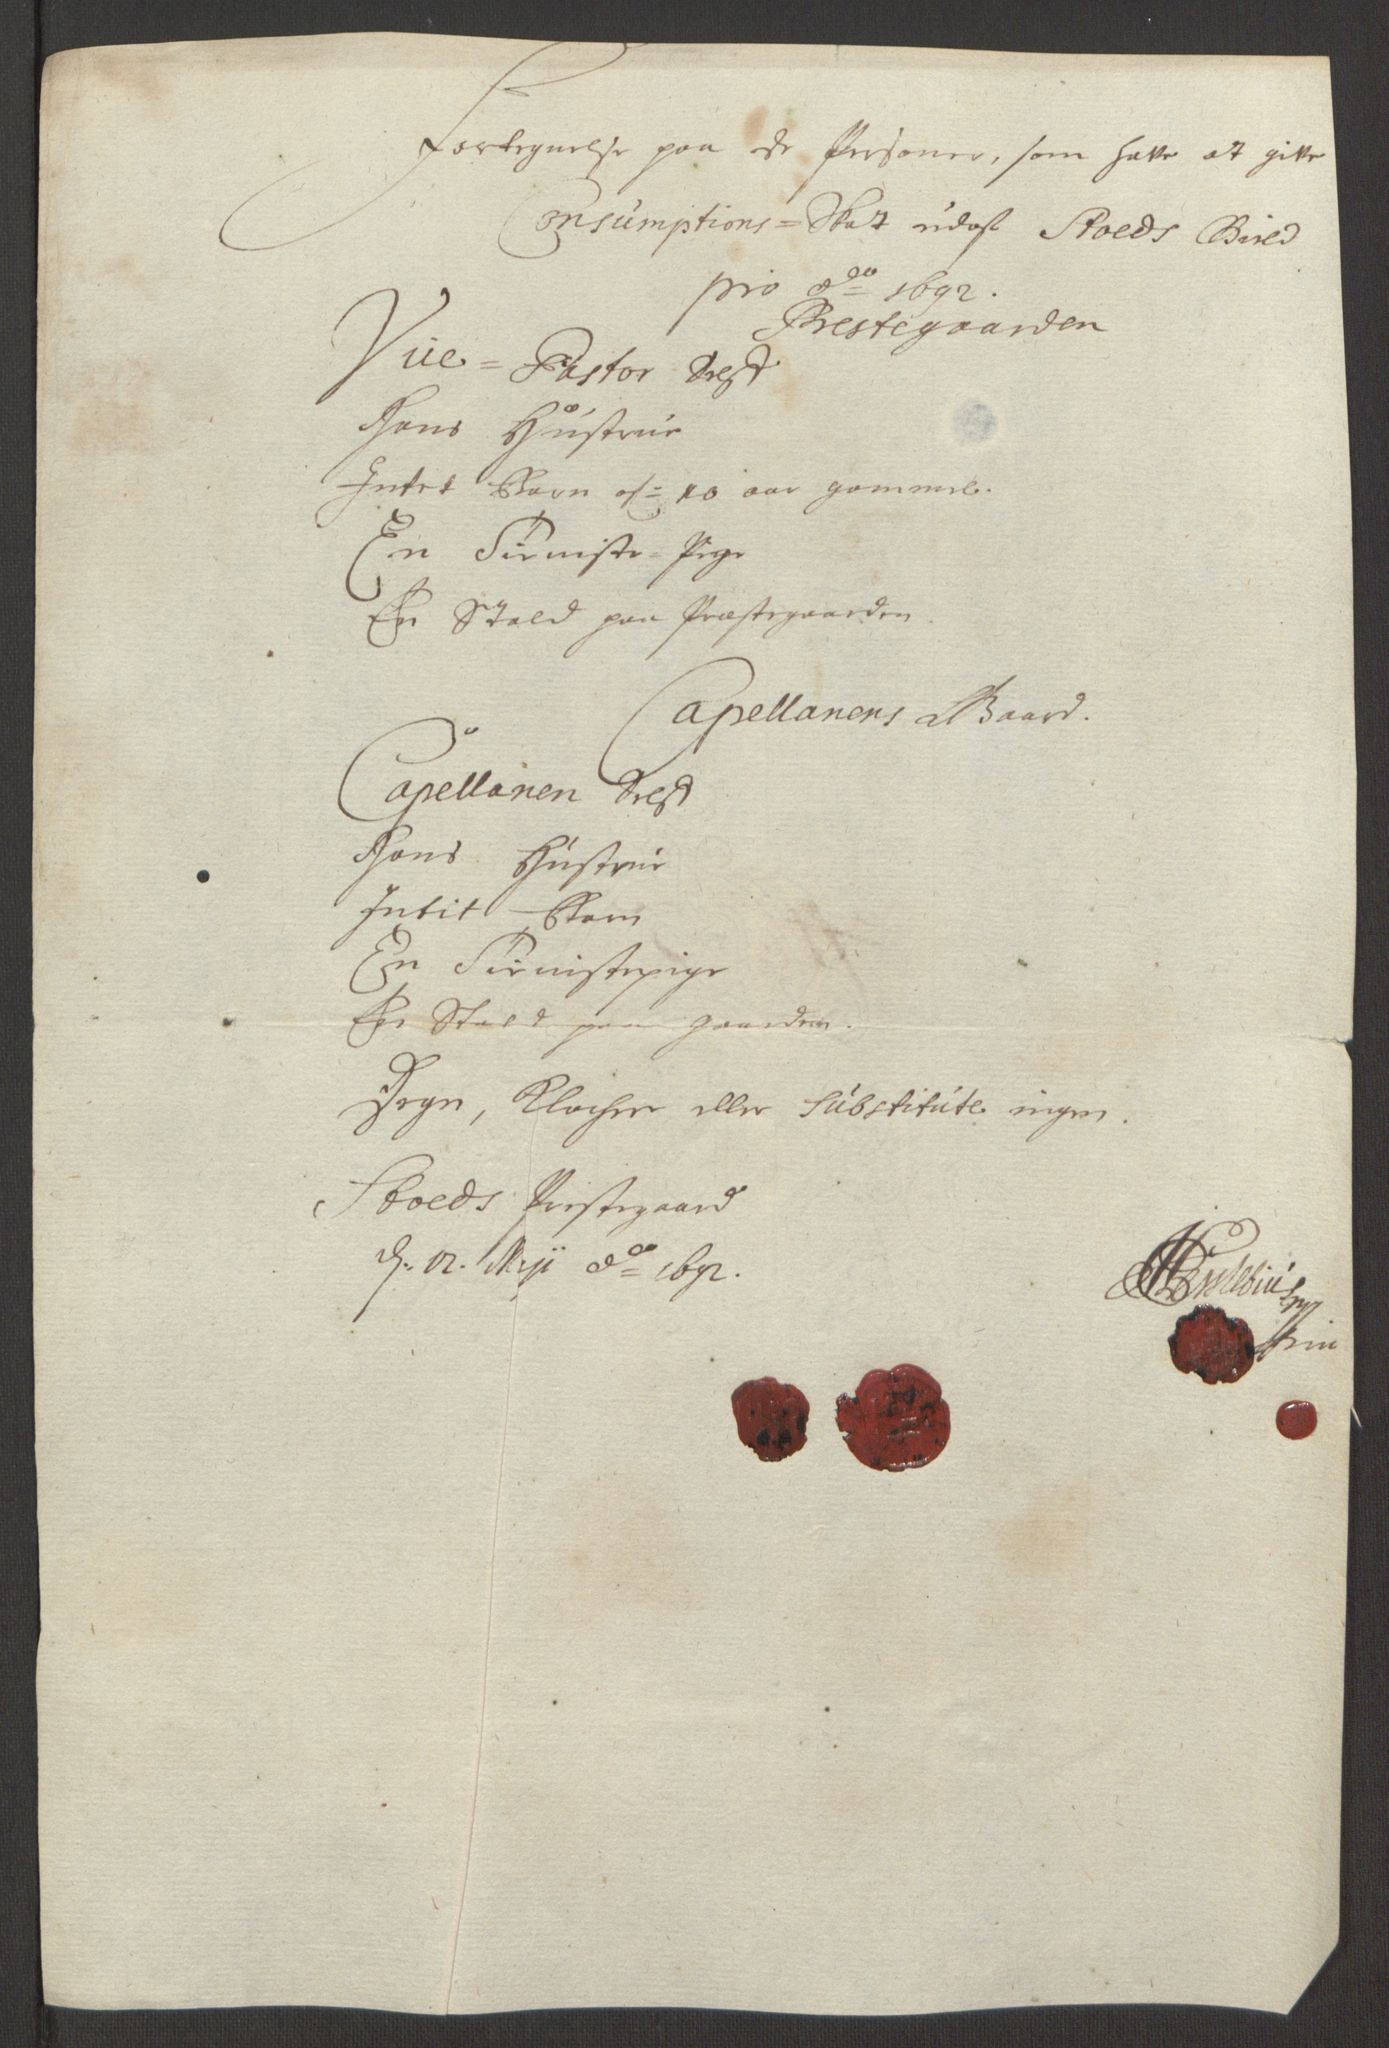 Fortegnelse paa de Personer, som have at give
Consumptions=Skat udaf Skoeds Gield
pro Ao 1692.
Prestegaarden
Vice=Pastor Self
Hans Hustrue
Intet Barn of= 10 aar gammel.
En Tienniste=Pige
En Stald paa Præstegaarden
Capellanens Gaard.
Capellanen Self
Hans Hustrue
Intet Barn
En Tiennistepige
En Stald paa gaarden.
Degn, Klocher eller Substitute ingen.
Skoeds Præstegaard
d. 12. Maji Ao 1692.